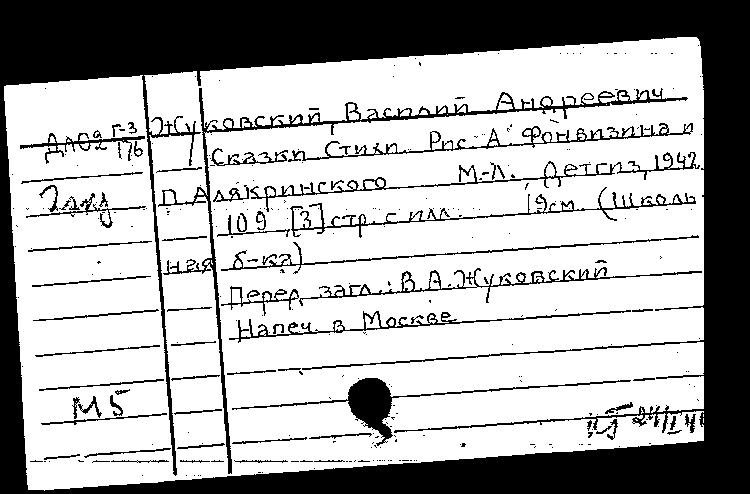 Жуковский, Василий Андреевич
Д 1102 Г-3/176
Сказки. Стихи. Рис. А. Фонвизина и
П. Алякринского М-Л. Детгиз, 1942
109, [3] стр. с илл. 19см. (Школь
ная б-ка)
Перед загл.: В.А. Жуковский
Напеч. в Москве
М5